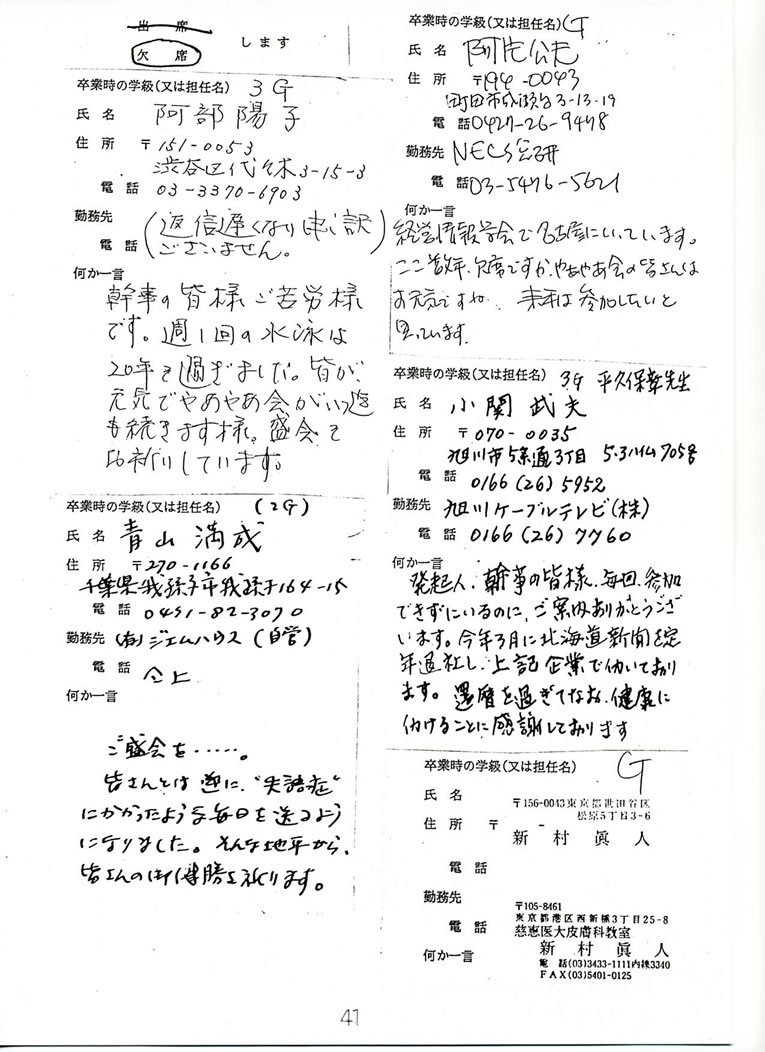 出席
欠席
します
卒業時の学級(又は担任名) 3G
氏名 阿部陽子
住所 〒151-0053
渋谷区代々木3-15-3
電話 03-3370-6903
勤務先
電話
(返信遅くなり申し訳
ございません。)
何か一言
幹事の皆様ご苦労様
です。週1回の水泳は
20年を過ぎました。皆が
元気でやあやあ会がいつ迄
も続きます様。盛会を
お祈りしています。
卒業時の学級(又は担任名) (2G)
氏名 青山満成
住所 〒270-1166
千葉県我孫子市我孫子164-15
電話 0471-82-3070
勤務先 (有)ジェムハウス(自営)
電話 仝上
何か一言
ご盛会を……。
皆さんとは逆に、"失語症"
にかかったような毎日を送るよう
になりました。そんな地平から、
皆さんの御健勝を祈ります。
卒業時の学級(又は担任名) G
氏名
住所 〒194-0043
町田市成瀬台3-13-19
電話 0427-26-9478
勤務先 NEC
電話 03-5476-5621
何か一言
経営情報学会で名古屋にいっています。
ここ数年、欠席ですが、やあやあ会の皆さんは
お元気ですね。来年は参加したいと
思っています。
卒業時の学級(又は担任名) 3G 平久保章先生
氏名 小関武夫
住所 〒070-0035
旭川市5条通3丁目 5.3ハイム705号
電話 0166(26)5952
勤務先 旭川ケーブルテレビ(株)
電話 0166(26)7760
何か一言
発起人、幹事の皆様、毎回、参加
できずにいるのに、ご案内ありがとうござ
います。今年3月に北海道新聞を定
年退社し、上記企業で働いており
ます。還暦を過ぎてなお、健康に
働けることに感謝しております
卒業時の学級(又は担任名) G
氏名
〒156-0043東京都世田谷区
松原5丁目3-6
住所 〒 -
新村眞人
電話
勤務先
〒105-8461
東京都港区西新橋3丁目25-8
電話
慈恵医大皮膚科教室
何か一言
新村眞人
電話(03)3433-1111内線3340
FAX(03)5401-0125
41